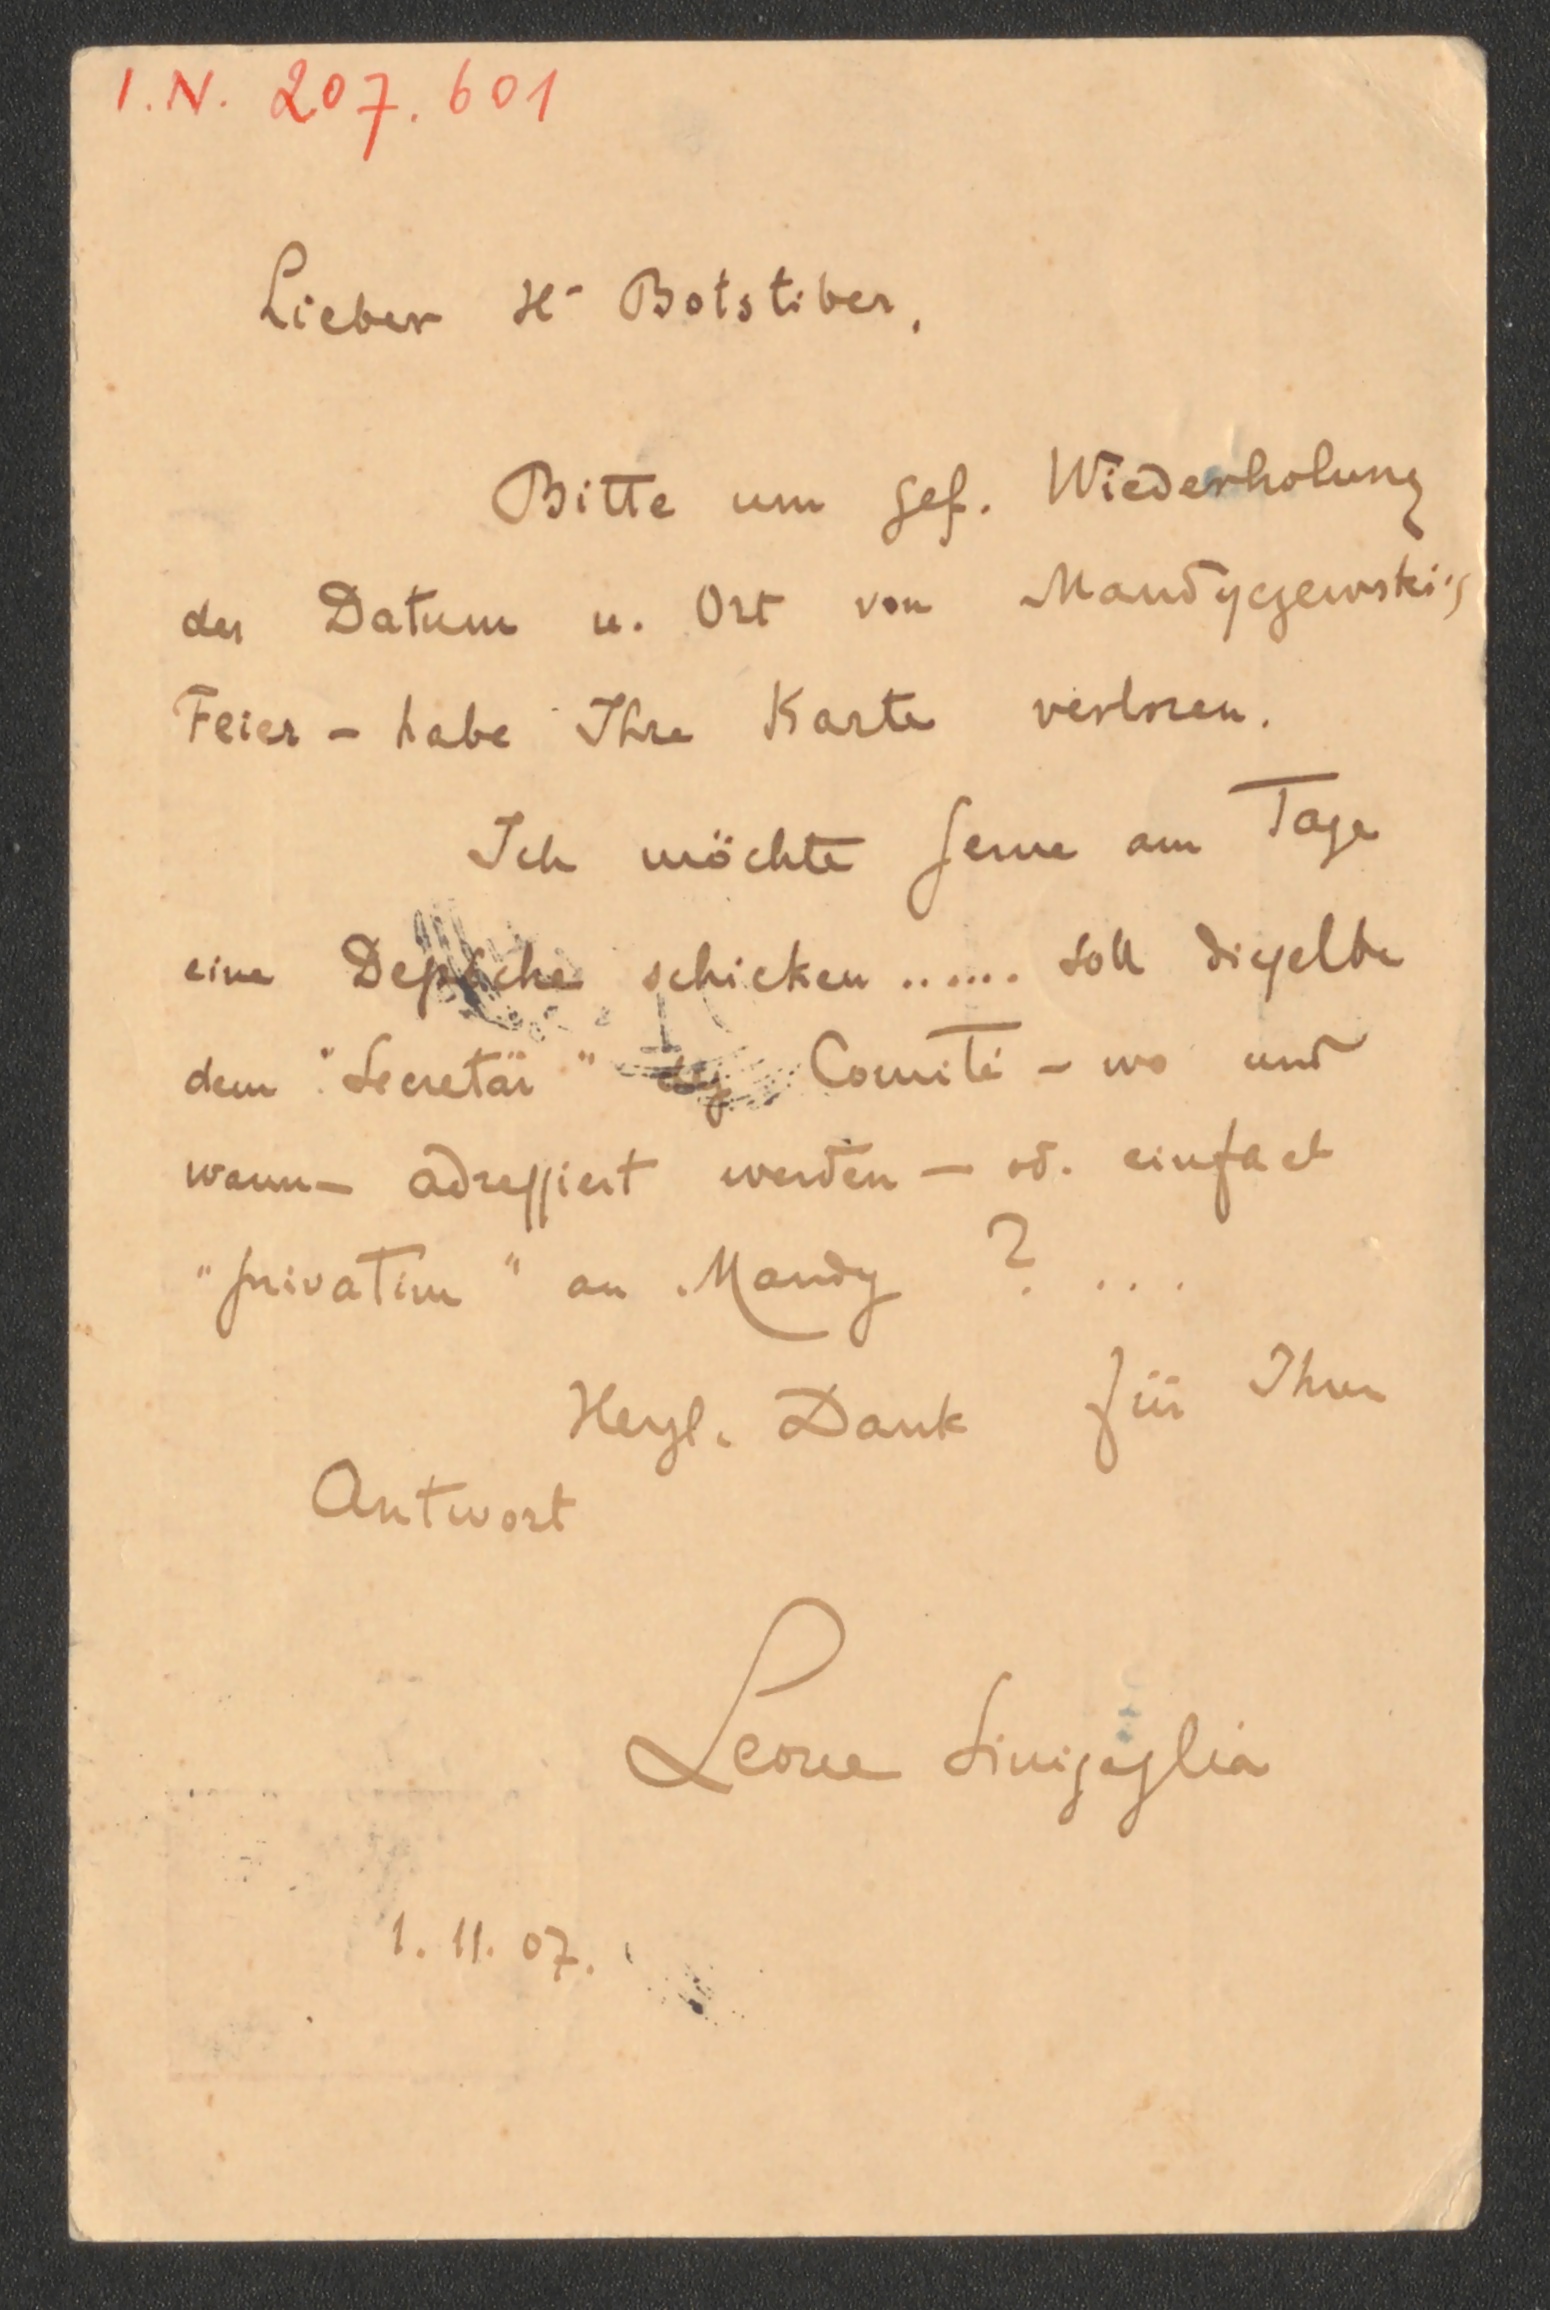 I.N. 207.601
Lieber Hr Botstiber,
Bitte um gef. Wiederholung
der Datum u. Ort von Mandyczewski's
Feier – habe Ihre Karte verloren.
Ich möchte gerne am Tage
eine Depesche schicken ...... soll dieselbe
dem "Secretär" des Comité – wo und
wann – adressiert werden – od. einfach
"privatim" an Mandy ? ...
Herzl. Dank für Ihre
Antwort
Leone Sinigaglia
1. 11. 07.